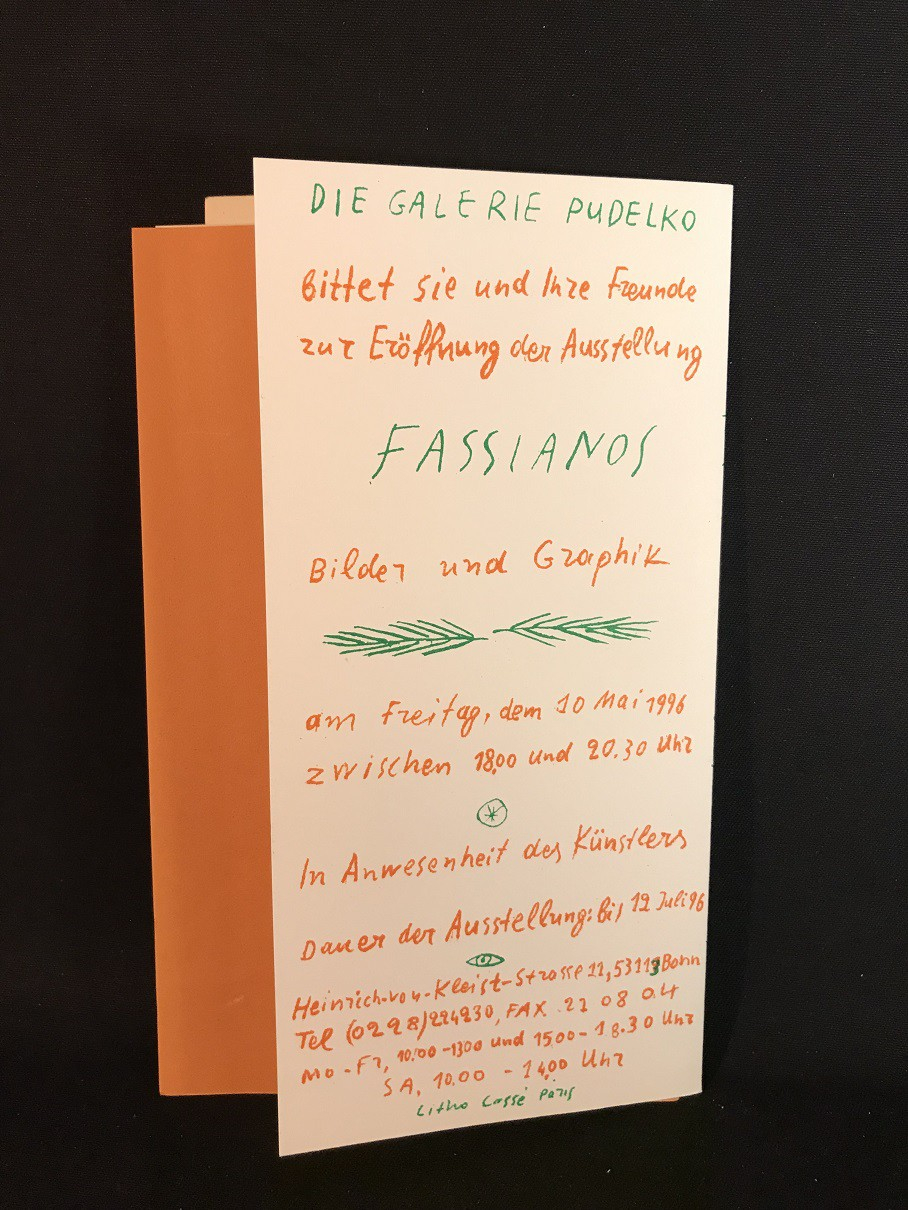 DIE GALERIE PUDELKO
bittet sie und Ihre Freunde
zur Eröffnung der Ausstellung
FASSIANOS
Bilder und Graphik
am Freitag, dem 10 Mai 1996
zwischen 18.00 und 20.30 Uhr
In Anwesenheit des Künstlers
Dauer der Ausstellung: bis 12 Juli 96
Heinrich-von-Kleist-Strasse 11, 53113 Bonn
Tel (0228) 224230, FAX. 21 08 04
Mo-Fr, 10.00-1300 und 15.00-18.30 Uhr
SA, 10.00 - 14.00 Uhr
Litho Cassé Paris